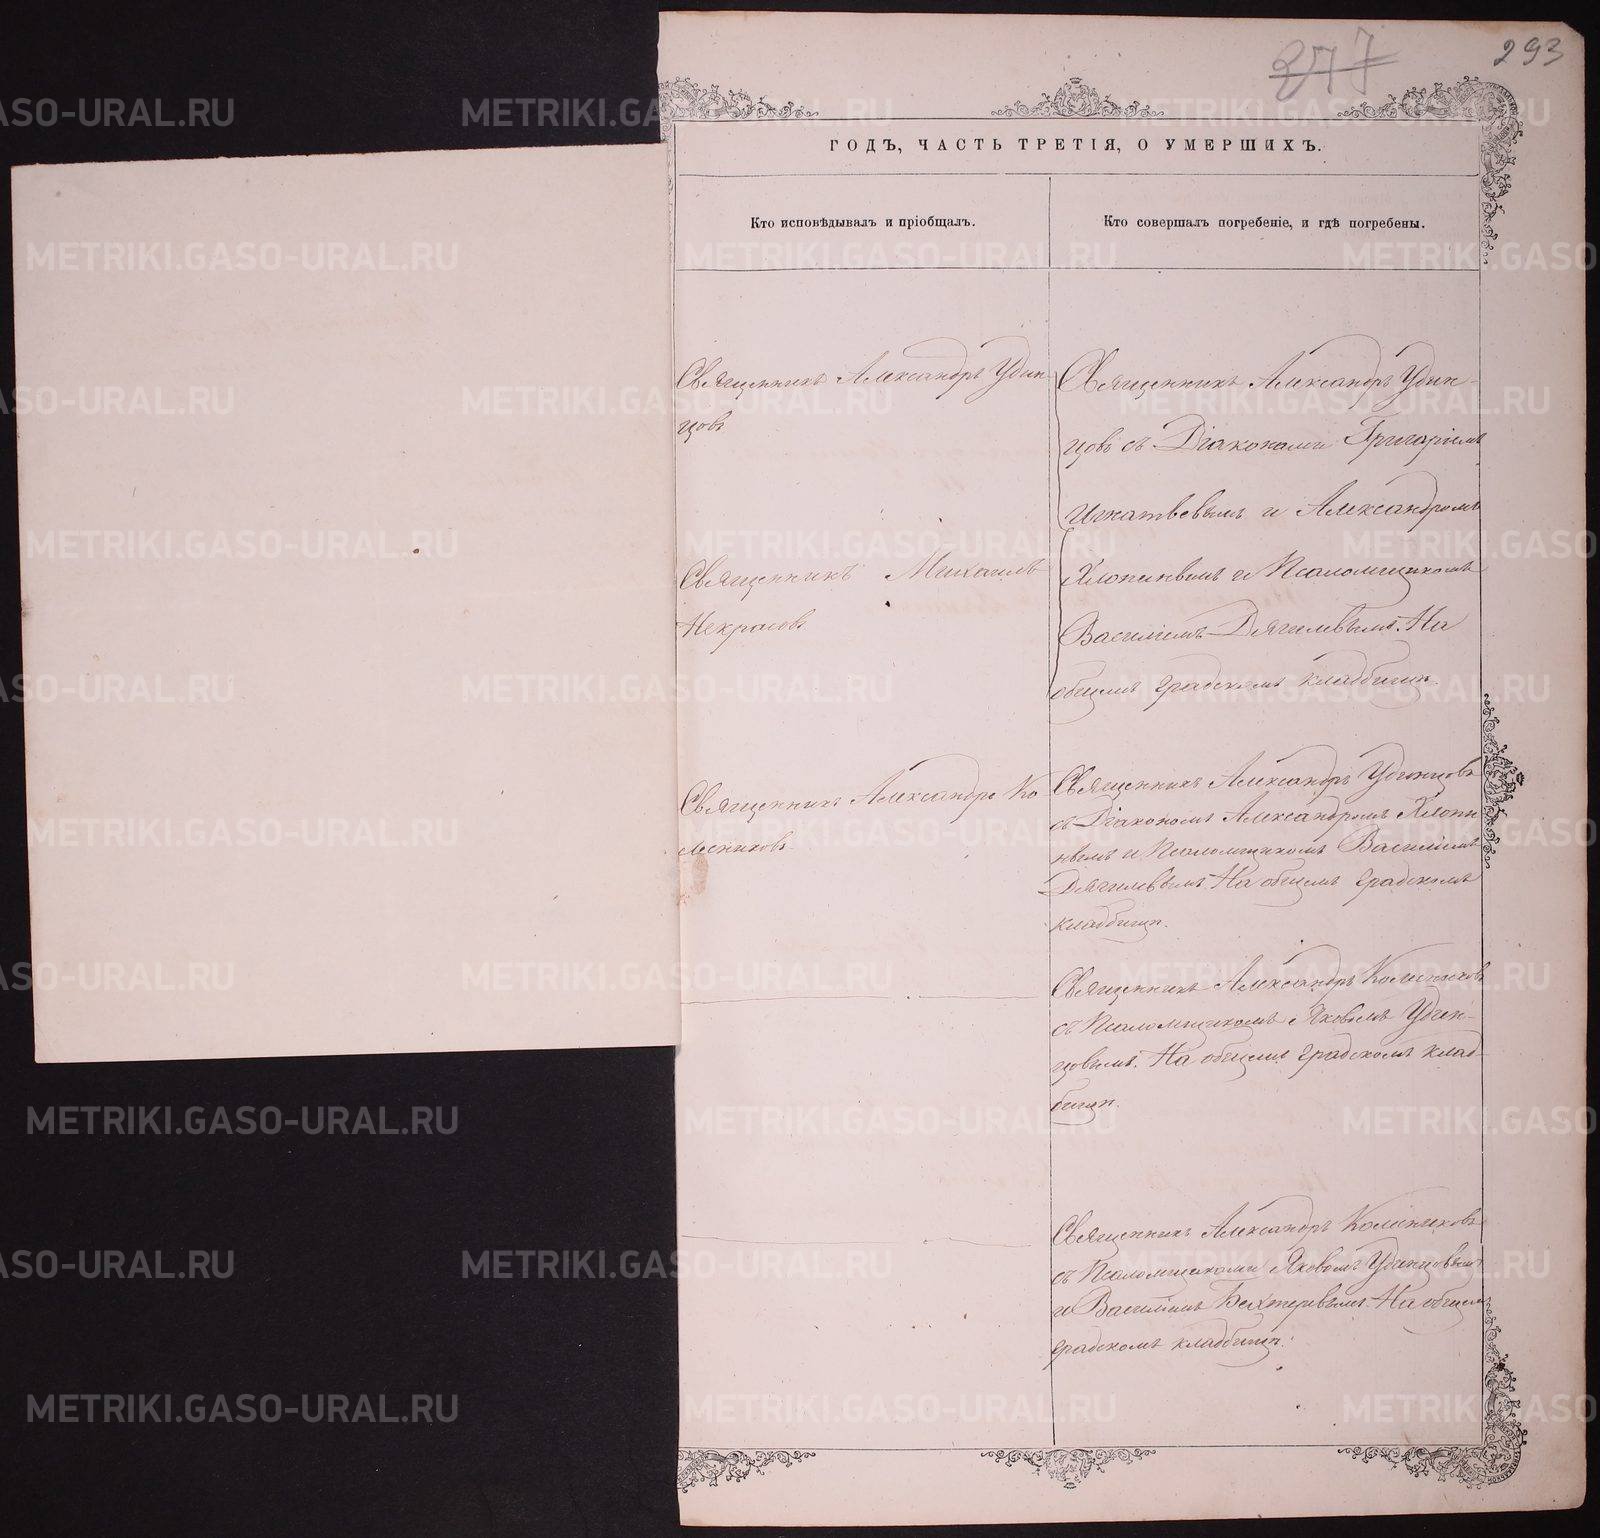 277
293
ГОДЪ, ЧАСТЬ ТРЕТІЯ, О УМЕРШИХЪ.
Кто исповѣдывалъ и пріобщалъ.
Кто совершалъ погребеніе, и гдѣ погребены.
Священникъ Александръ Удин
цовъ
Священникъ Михаилъ
Некрасовъ
Священникъ Александръ Ко
лесниковъ
Священникъ Александръ Удин-
цовъ съ Діаконами Григоріемъ
Игнатьевымъ и Александромъ
и Псаломщикомъ
Василіемъ Дягилевымъ. На
общемъ градскомъ кладбищѣ.
Священникъ Александръ Удинцовъ
съ Діакономъ Александромъ
и Псаломщикомъ Василіемъ
Дягилевымъ. На общемъ градскомъ
кладбищѣ.
Священникъ Александръ Колесниковъ
съ Псаломщикомъ Яковомъ Удин-
цовымъ. На общемъ градскомъ клад-
бищѣ.
Священникъ Александръ Колесниковъ
съ Псаломщиками Яковомъ Удинцовымъ
и Василіемъ Бехтеревымъ. На общемъ
градскомъ кладбищѣ.
METRIKI.GASO-URAL.RU